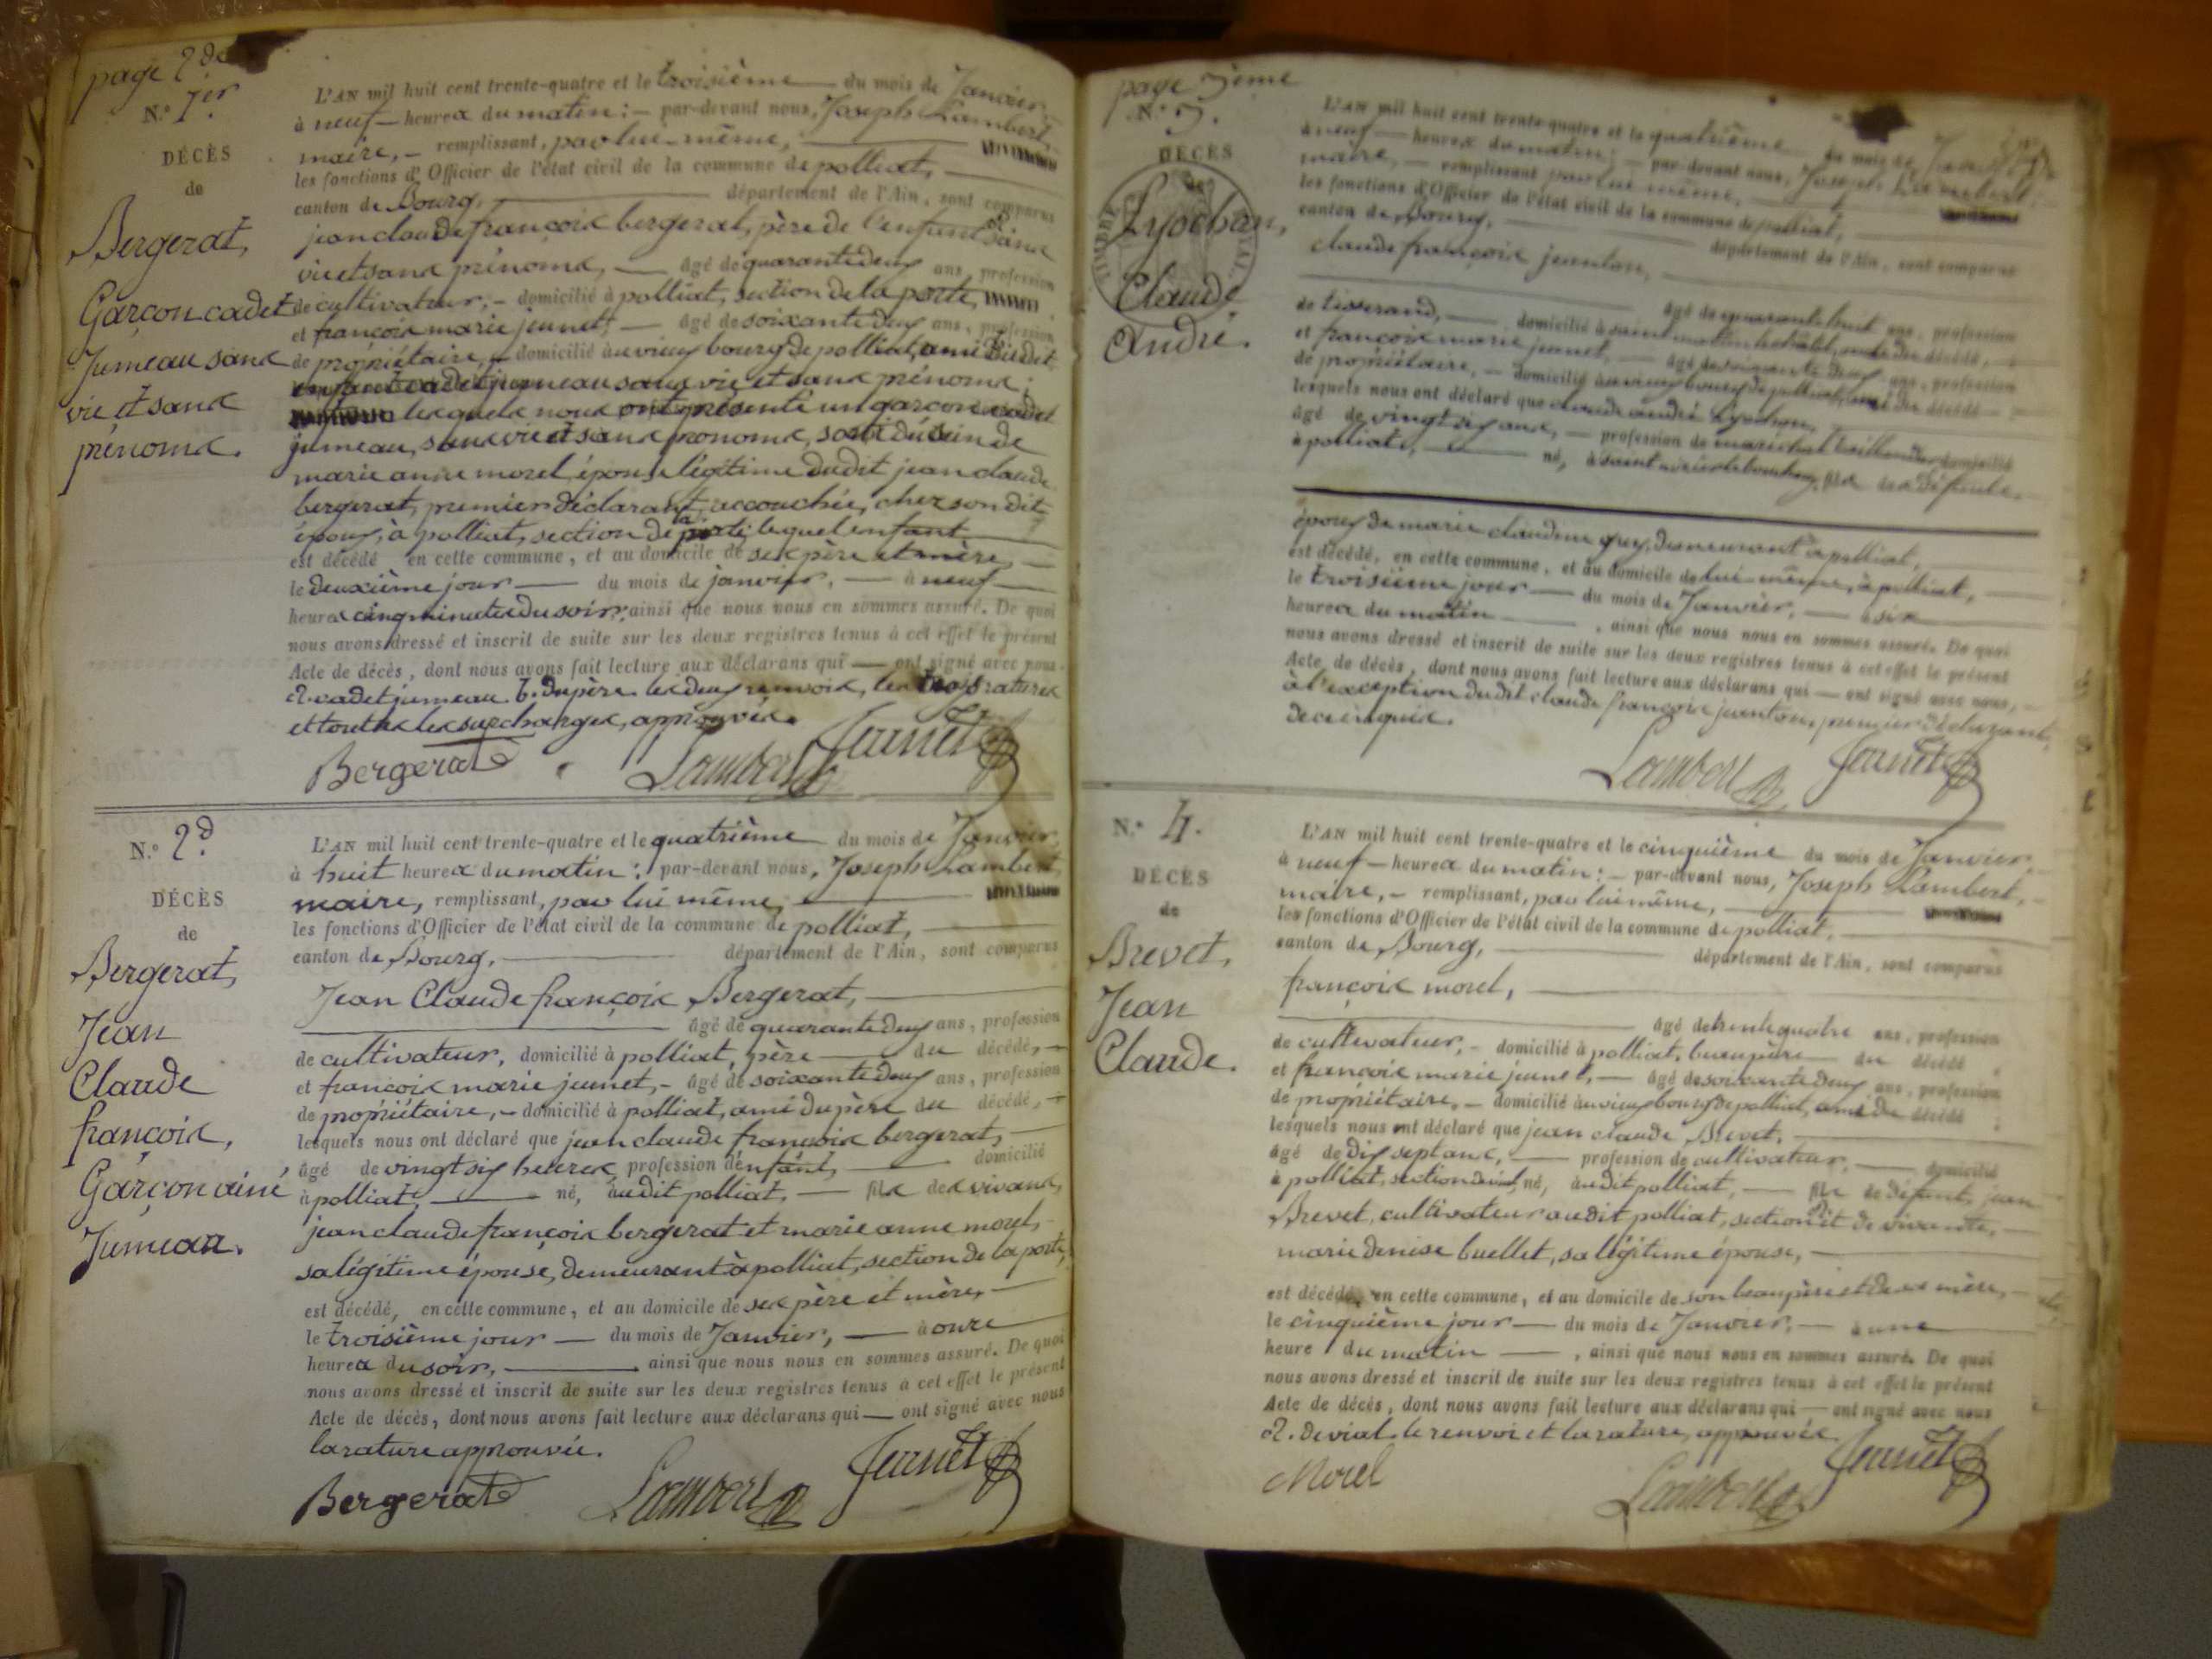 page 2de
N.° 1er
DÉCÈS
de
Bergerat,
Garçon cadet
Jumeau sans
vie et sans
prénoms.
L'AN mil huit cent trente-quatre et le troisième du mois de Janvier,
à neuf heures du matin; par-devant nous, Joseph Lambert,
maire, remplissant, par lui-même,
les fonctions d'Officier de l'état civil de la commune de polliat,
canton de Bourg, département de l'Ain, sont comparus
jean claude françois bergerat, père de l'enfant sans
vie et sans prénoms, âgé de quarante deux ans, profession
de cultivateur, domicilié à polliat, section de la porte,
et françois marie jeunet, âgé de soixante deux ans, profession
de propriétaire, domicilié au vieux bourg de polliat, ami dudit
enfant cadet jumeau sans vie et sans prénoms;
lesquels nous ont présenté un garçon cadet
jumeau, sans vie et sans prenoms, sorti du sein de
marie anne morel, épouse légitime dudit jean claude
bergerat, premier déclarant, accouchée, chez son dit
époux, à polliat, section de la porte; lequel enfant
est décédé en cette commune, et au domicile de ses père et mère,
le deuxième jour du mois de janvier, à neuf
heures cinq minutes du soir; ainsi que nous nous en sommes assuré. De quoi
nous avons dressé et inscrit de suite sur les deux registres tenus à cet effet le présent
Acte de décès, dont nous avons fait lecture aux déclarans qui ont signé avec nous.
cadet jumeau. b. du père. les deux renvois, les trois ratures
et toutes les surcharges, approuvés.
Bergerat Lambert Jeunet
N.° 2d
DÉCÈS
de
Bergerat,
Jean
Claude
françois,
Garçon ainé
Jumeau.
L'AN mil huit cent trente-quatre et le quatrième du mois de Janvier,
à huit heures du matin; par-devant nous, Joseph Lambert,
maire, remplissant, par lui même,
les fonctions d'Officier de l'état civil de la commune de polliat,
canton de Bourg, département de l'Ain, sont comparus
Jean Claude françois Bergerat,
âgé de quarante deux ans, profession
de cultivateur, domicilié à polliat, père du décédé,
et françois marie jeunet, âgé de soixante deux ans, profession
de propriétaire, domicilié à polliat, ami du père du décédé,
lesquels nous ont déclaré que jean claude françois bergerat,
âgé de vingt six heures, profession d'enfant, domicilié
à polliat, né, audit polliat, fils des vivans,
jean claude françois bergerat et marie anne morel,
sa légitime épouse, demeurant à polliat, section de la porte,
est décédé, en cette commune, et au domicile de ses père et mère,
le troisième jour du mois de Janvier, à onze
heures du soir, ainsi que nous nous en sommes assuré. De quoi
nous avons dressé et inscrit de suite sur les deux registres tenus à cet effet le présent
Acte de décès, dont nous avons fait lecture aux déclarans qui ont signé avec nous
la rature approuvée.
Bergerat Lambert Jeunet
page 3ème
N.° 3.
DÉCÈS
de
Lyochan,
Claude
André.
L'AN mil huit cent trente-quatre et le quatrième du mois de Janvier,
à neuf heures du matin; par-devant nous, Joseph Lambert,
maire, remplissant par lui même,
les fonctions d'Officier de l'état civil de la commune de polliat,
canton de Bourg, département de l'Ain, sont comparus
claude françois jeanton,
âgé de quarante huit ans, profession
de tisserand, domicilié à saint martin le châtel, du décédé,
et françois marie jeunet, âgé de soixante deux ans, profession
de propriétaire, domicilié au vieux bourg de polliat, ami du décédé
lesquels nous ont déclaré que claude andré Lyochon,
âgé de vingt six ans, profession de marechal taillandier domicilié
à polliat, né, à saint fils
époux de marie claudine guy, demeurant à polliat,
est décédé, en cette commune, et au domicile de lui-même, à polliat,
le troisième jour du mois de Janvier, à six
heures du matin, ainsi que nous nous en sommes assuré. De quoi
nous avons dressé et inscrit de suite sur les deux registres tenus à cet effet le présent
Acte de décès, dont nous avons fait lecture aux déclarans qui ont signé avec nous,
à l'exception dudit claude françois jeanton, premier déclarant,
de ce inquis.
Lambert Jeunet
N.° 4.
DÉCÈS
de
Brevet,
Jean
Claude.
L'AN mil huit cent trente-quatre et le cinquième du mois de Janvier,
à neuf heures du matin; par-devant nous, Joseph Lambert,
maire, remplissant, par lui même,
les fonctions d'Officier de l'état civil de la commune de polliat,
canton de Bourg, département de l'Ain, sont comparus
françois morel,
âgé de trente quatre ans, profession
de cultivateur, domicilié à polliat, beaupère du décédé,
et françois marie jeunet, âgé de soixante deux ans, profession
de propriétaire, domicilié au vieux bourg de polliat, ami du décédé,
lesquels nous ont déclaré que jean claude Brevet,
âgé de dix sept ans, profession de cultivateur, domicilié
à polliat, section de vial, né, audit polliat, fils de défunt, jean
Brevet, cultivateur audit polliat, section et de vivante,
marie denise buellet, sa légitime épouse,
est décédé, en cette commune, et au domicile de son beaupère et de sa mère,
le cinquième jour du mois de Janvier, à une
heure du matin, ainsi que nous nous en sommes assuré. De quoi
nous avons dressé et inscrit de suite sur les deux registres tenus à cet effet le présent
Acte de décès, dont nous avons fait lecture aux déclarans qui ont signé avec nous
de vial. le renvoi et la rature, approuvés.
Morel Lambert Jeunet